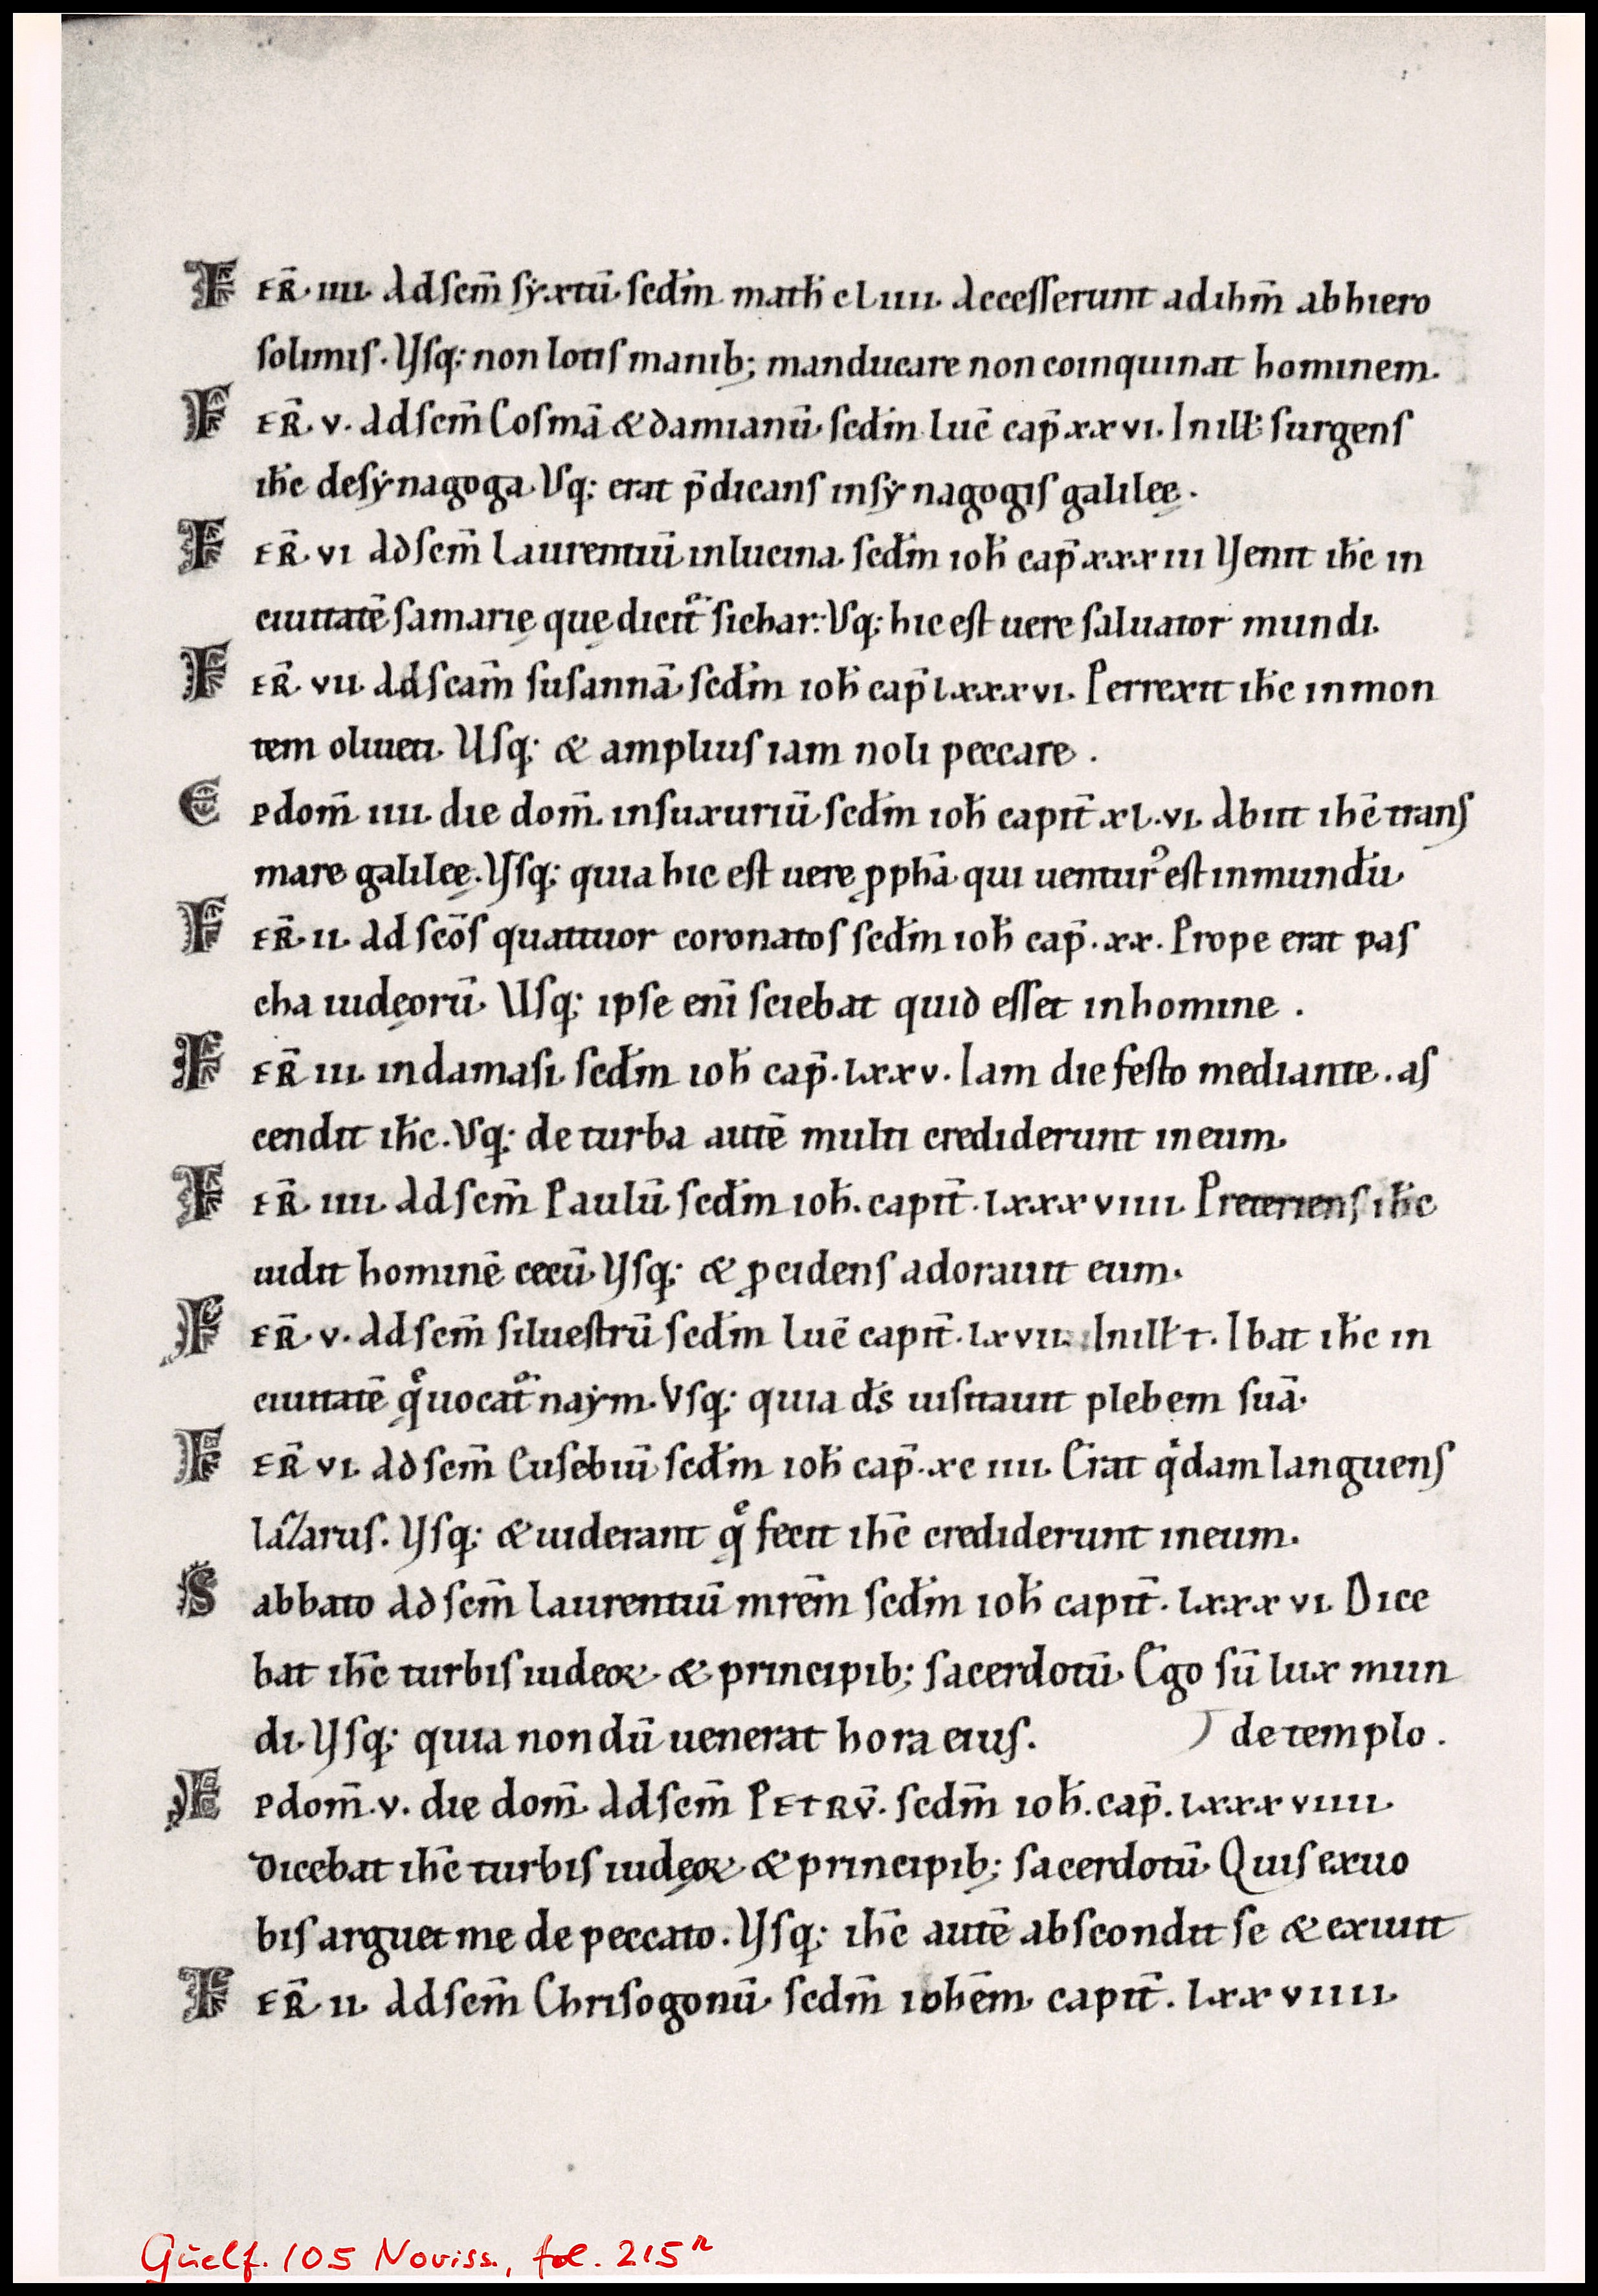 FER̄. IIII. Ad scm̄ syxtū. scd̄m math̄ cLIIII. Accesserunt ad ihm̄ ab hiero
solimis. Vsq; non lotis manib; manducare non coinquinat hominem.
FER̄. V. Ad scm̄ Cosmā & damianū. scd̄m lūc cap̄ xxvi. In ill̄: surgens
ih̄c de synagoga. Vsq; erat p̄dicans in synagogis galileę.
FER̄. VI Ad scm̄ Laurentiū in lucina. scd̄m ioh̄ cap̄ xxxiii Venit ih̄c in
ciuitatē samarię quę dicit̄ sichar. Vsq; hic est uere saluator mundi.
FER̄. VII. Ad scam̄ susannā. scd̄m ioh̄ cap̄ lxxxvi. Perrexit ih̄c in mon
tem oliueti. Vsq; & amplius iam noli peccare.
EPdom̄ IIII. die dom̄. in suxuriū. scd̄m ioh̄ capit̄ xl.vi. Abiit ih̄c trans
mare galileę. Vsq; quia hic est uere ꝓph̄a qui uenturꝰ est in mundū.
FER̄. II. Ad scōs quattuor coronatos scd̄m ioh̄ cap̄. xx. Prope erat pas
cha iudęorū. Vsq; ipse enī sciebat quid esset in homine.
FER̄ III. in damasi. scd̄m ioh̄ cap̄. lxxv. Iam die festo mediante. as
cendit ih̄c. Vsq; de turba autē multi crediderunt in eum.
FER̄. IIII. Ad scm̄ Paulū. scd̄m ioh̄. capit̄. lxxxviiii. Preteriens ih̄c
uidit hominē cecū. Vsq; & ꝓcidens adorauit eum.
FER̄. V. Ad scm̄ siluestrū. scd̄m lūc capit̄. lxvii. In ill̄ t. Ibat ih̄c in
ciuitatē qͤ uocat̄ naym. Vsq; quia d̄s uisitauit plebem suā.
FER̄ VI. Ad scm̄ Eusebiū. scd̄m ioh̄ cap̄. xc iiii. Erat qͥdam languens
lazarus. Vsq; & uiderant qͤ fecit ih̄c crediderunt in eum.
Sabbato Ad scm̄ Laurentiū mrēm scd̄m ioh̄ capit̄. lxxxvi. Dice
bat ih̄c turbis iudeoꝝ. & principib; sacerdotū. Ego sū lux mun
di. Vsq; quia nondū uenerat hora eius. de templo.
EPdom̄. V. die dom̄. Ad scm̄ PETRV̄. scdm̄ ioh̄. cap̄. lxxxviiii.
dicebat ih̄c turbis iudęoꝝ. & principib; sacerdotū. Quis ex uo
bis arguet me de peccato. Vsq; ih̄c autē abscondit se & exiuit
FER̄. II. Ad scm̄ Chrisogonū. scdm̄ iohēm. capit̄. lxxviiii.
Guelf. 105 Noviss., fol. 215r